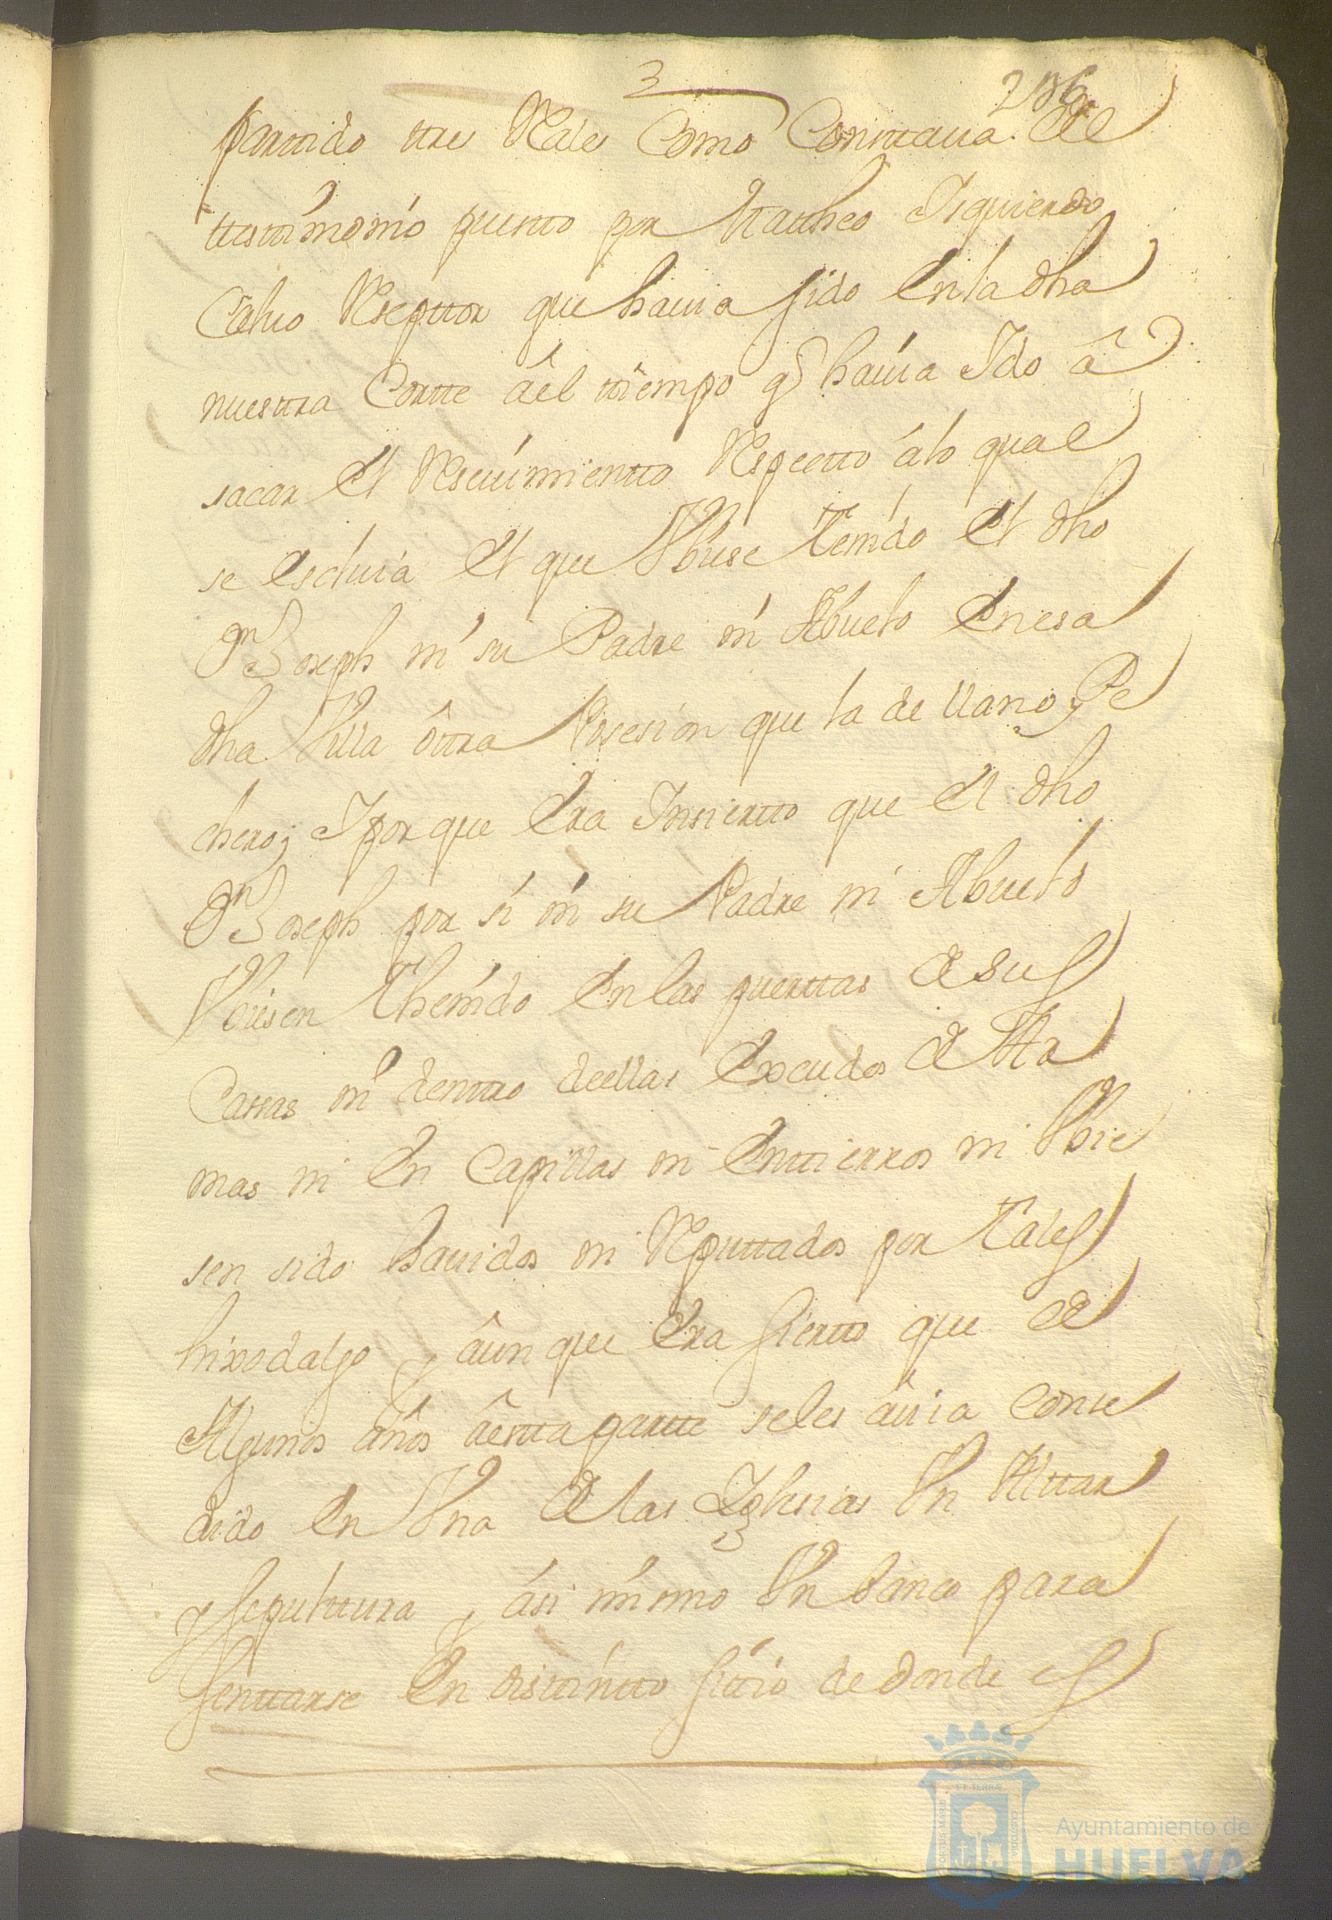 3
206
partido tres Rales Como Constaua del
testtimonio puesto por Matheo Isquierdo
Calvo Reseptor que hauia sido en la dha
nuestra Cortte âel tiempo q̃ hauia Ido â
sacar el Resciuimientto Respecto álo qual
se escluia el que Vbiese Tenido el dho
Dn Joseph ni su Padre ni Abuelo en esa
dha Villa ôtra Posesion que la de llano Pe
chero; I porque era Insiertto que el dho
Dn Joseph por si ni su Padre ni Abuelo
Vbiesen Thenido en las puerttas de sus
Cassas ni dentro de ellas Excudos de Ar
mas ni en Capillas ni entierros ni Vbie
sen sido hauidos ni Reputtados por tales
hixodalgo y âunque era sierto que de
Algunos años âestta partte se les âuia Conse
dido en Vna de las Iglesias Vn Alttar
y sepulttura y ási mismo Vn banco para
senttarse en disttintto sittio de donde es
Ayuntamiento de
HUELVA